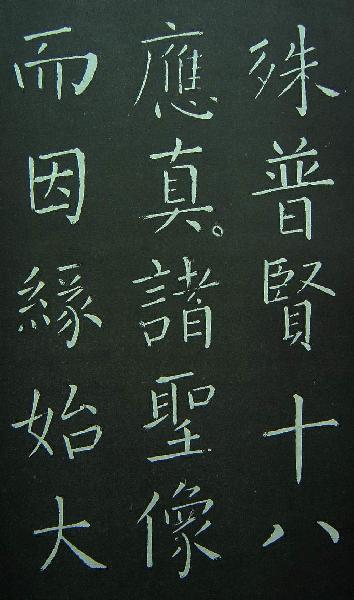 殊普賢十八
應真。諸聖像
而因緣始大